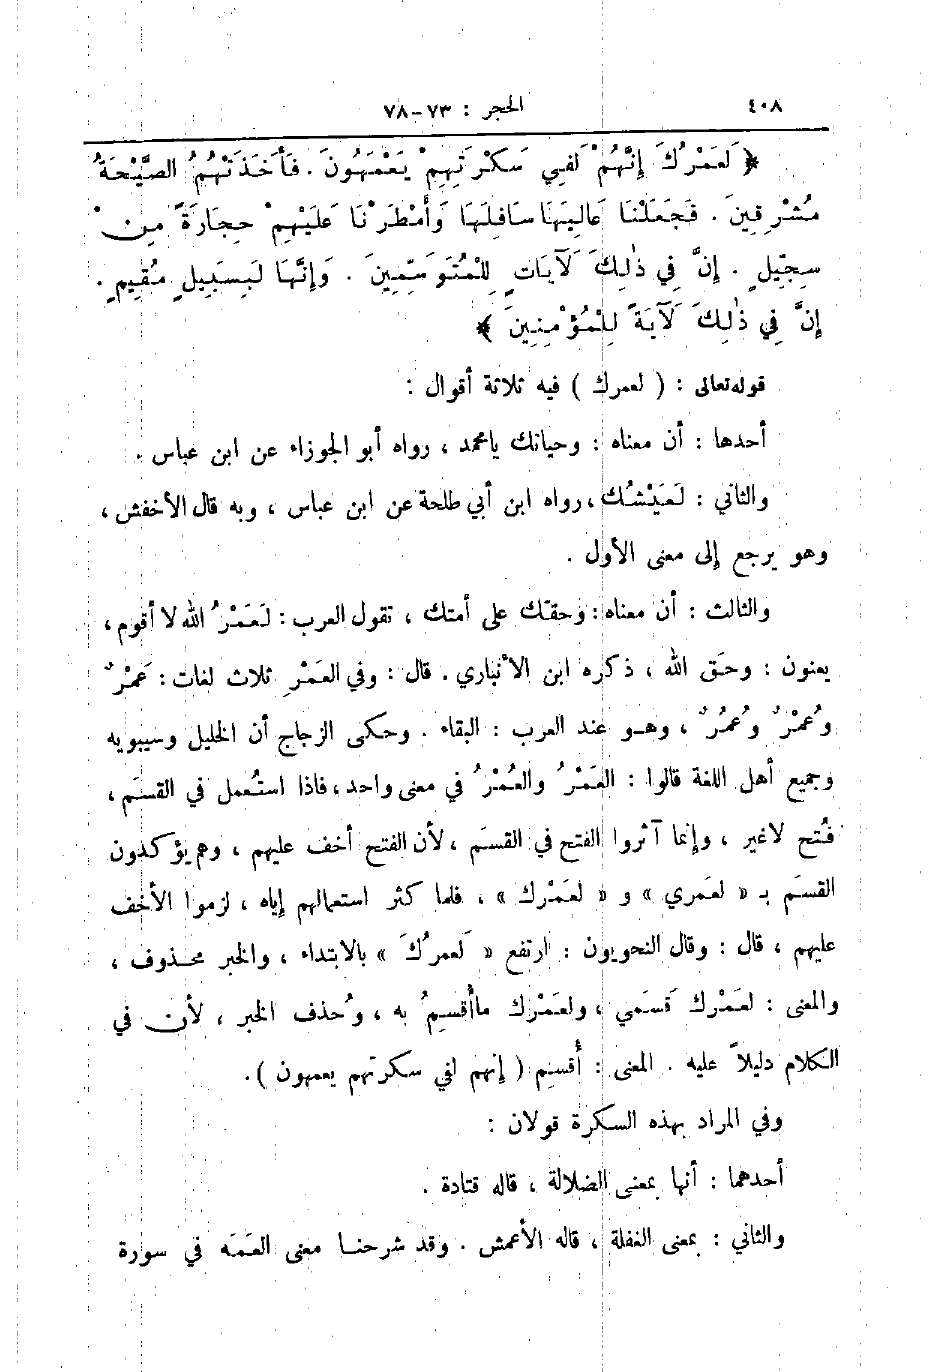 ٤٠٨ الحجر : ٧٣-٧٨
﴿ لَعَمْرُكَ إِنَّهُمْ لَفِي سَكْرَتِهِمْ يَعْمَهُونَ . فَأَخَذَتْهُمُ الصَّيْحَةُ
مُشْرِقِينَ . فَجَعَلْنَا عَالِيَهَا سَافِلَهَا وَأَمْطَرْنَا عَلَيْهِمْ حِجَارَةً مِنْ
سِجِّيلٍ . إِنَّ فِي ذٰلِكَ لَآيَاتٍ لِلْمُتَوَسِّمِينَ . وَإِنَّهَا لَبِسَبِيلٍ مُقِيمٍ .
إِنَّ فِي ذٰلِكَ لَآيَةً لِلْمُؤْمِنِينَ ﴾
قوله تعالى : ( لعمرك ) فيه ثلاثة أقوال :
أحدها : أن معناه : وحياتك يا محمد ، رواه أبو الجوزاء عن ابن عباس .
والثاني : لَعَيْشُك ، رواه ابن أبي طلحة عن ابن عباس ، وبه قال الأخفش ،
وهو يرجع إلى معنى الأول .
والثالث : أن معناه : وحقّك على أمتك ، تقول العرب : لَعَمْرُ الله لا أقوم ،
يعنون : وحَق الله ، ذكره ابن الأنباري . قال : وفي العَمْرِ ثلاث لغات : عَمْرٌ
وعُمْرٌ وعُمُرٌ ، وهـو عند العرب : البقاء . وحكى الزجاج أن الخليل وسيبويه
وجميع أهل اللغة قالوا : العَمْرُ والعُمْرُ في معنى واحد ، فاذا استُعمل في القسَم ،
فُتح لا غير ، وإنما آثروا الفتح في القسَم ، لأن الفتح أخف عليهم ، وهم يؤكدون
القسَم بـ « لعَمري » و « لعَمْرك » ، فلما كثر استعمالهم إياه ، لزموا الأخف
عليهم ، قال : وقال النحويون : ارتفع « لَعمرُكَ » بالابتداء ، والخبر محـذوف ،
والمعنى : لعَمْرك قَسَمي ، ولعَمْرك ما أُقسِمُ به ، وحُذف الخبر ، لأن في
الكلام دليلاً عليه . المعنى : أُقسِم ( إنهم لفي سكرتهم يعمهون ) .
وفي المراد بهذه السكرة قولان :
أحدهما : أنها بمعنى الضلالة ، قاله قتادة .
والثاني : بمعنى الغفلة ، قاله الأعمش . وقد شرحنـا معنى العَمَه في سورة